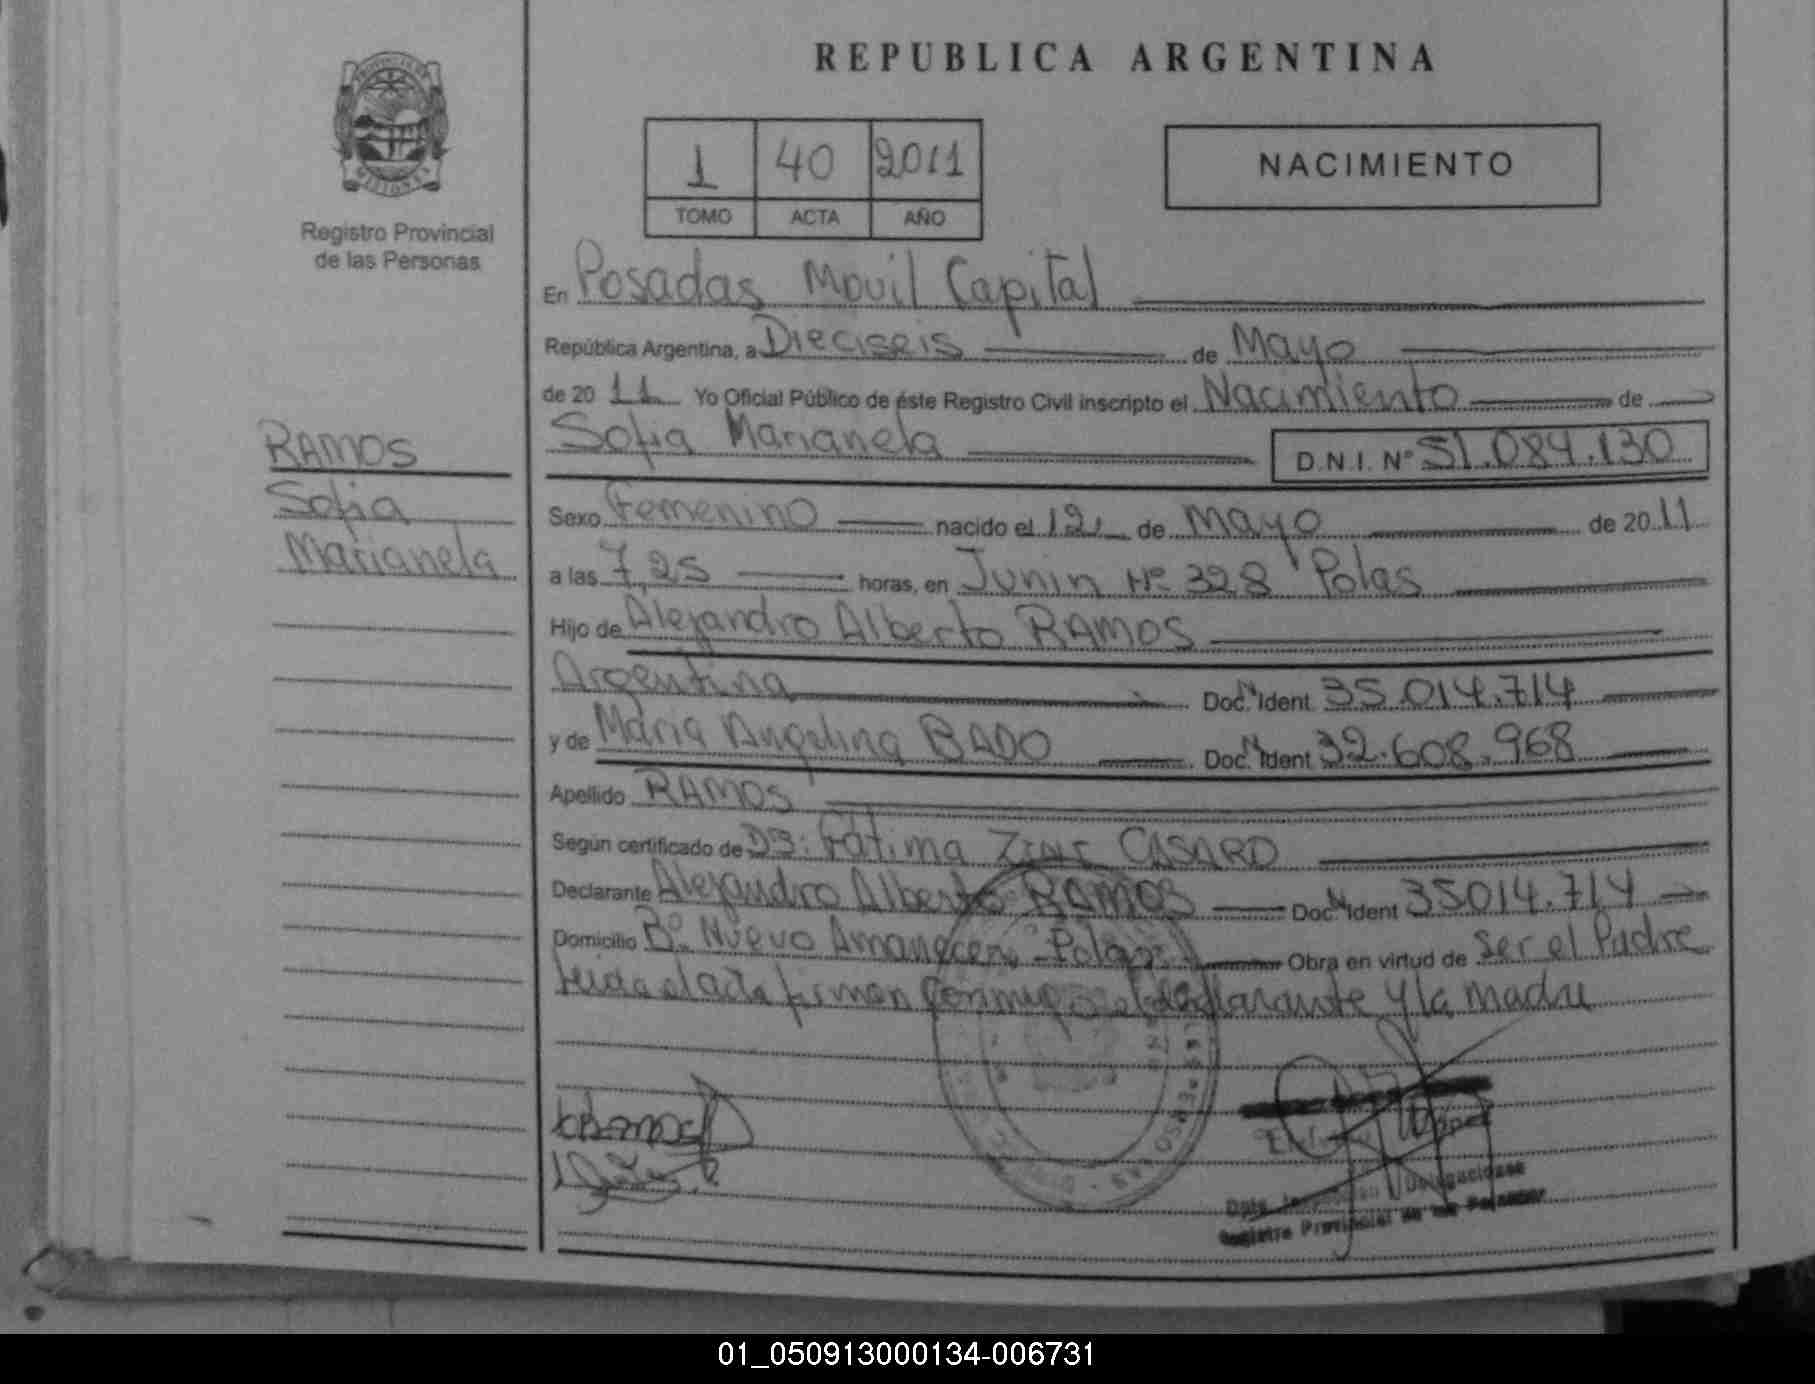 REPUBLICA ARGENTINA
PROVINCIA DE MISIONES
Registro Provincial
de las Personas
1 40 2011
TOMO ACTA AÑO
NACIMIENTO
En Posadas Movil Capital
República Argentina, a Dieciseis de Mayo
de 20 11 Yo Oficial Público de éste Registro Civil inscripto el Nacimiento de
RAMOS
Sofia
Marianela
Sofia Marianela D.N.I. Nº 51.084.130
Sexo Femenino nacido el 12 de Mayo de 20 11
a las 7,25 horas, en Junin Nº 328 Pdas
Hijo de Alejandro Alberto RAMOS
Argentina Doc. N Ident 35.014.714
y de Maria Angelina BADO Doc. N Ident 32.608.968
Apellido RAMOS
Según certificado de Fatima CASARO
Declarante Alejandro Alberto RAMOS Doc. N Ident 35014.714
Domicilio Bº Nuevo Amanecer - Pdas Obra en virtud de ser el Padre
Leida el acta firman conmigo el declarante y la madre
Registro Provincial de las Personas
01_050913000134-006731